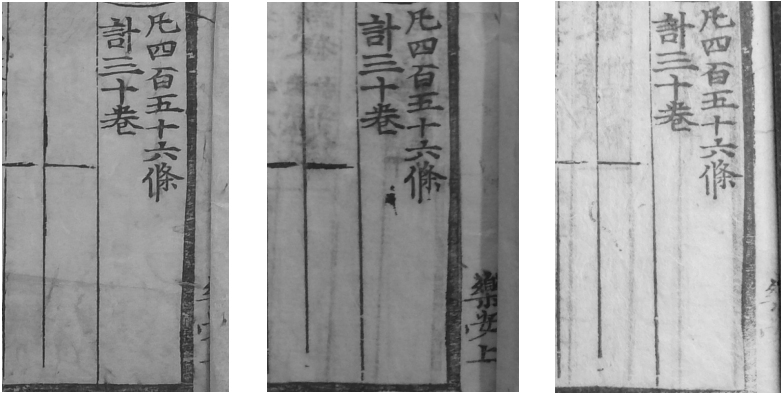 凡四百五十六條
計三十卷
凡四百五十六條
計三十卷
樂安上
凡四百五十六條
計三十卷